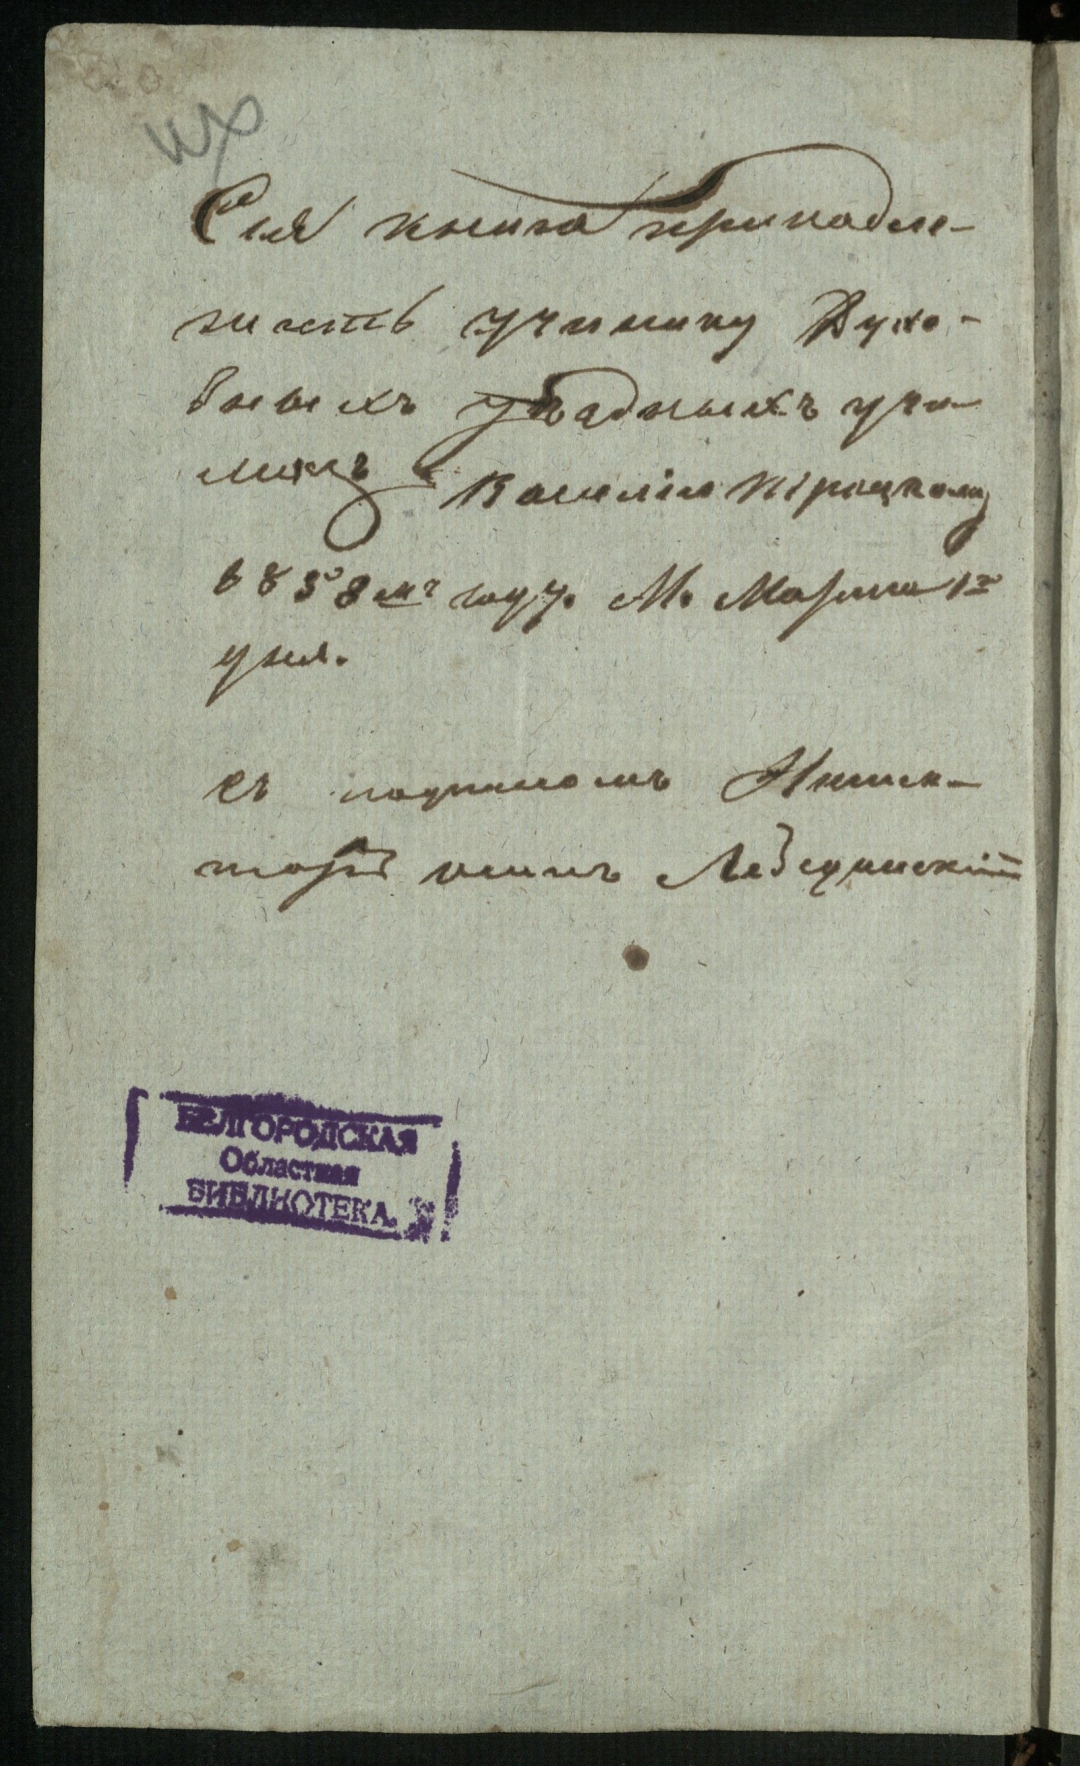 Сія книга принадле-
житъ ученику Духо-
вныхъ уѣздныхъ учи-
лищъ Василію
838мъ году. М. Марта 1го
дня.
съ подписомъ Инспек-
торъ Лебединскій
БЕЛГОРОДСКАЯ
Областная
БИБЛИОТЕКА